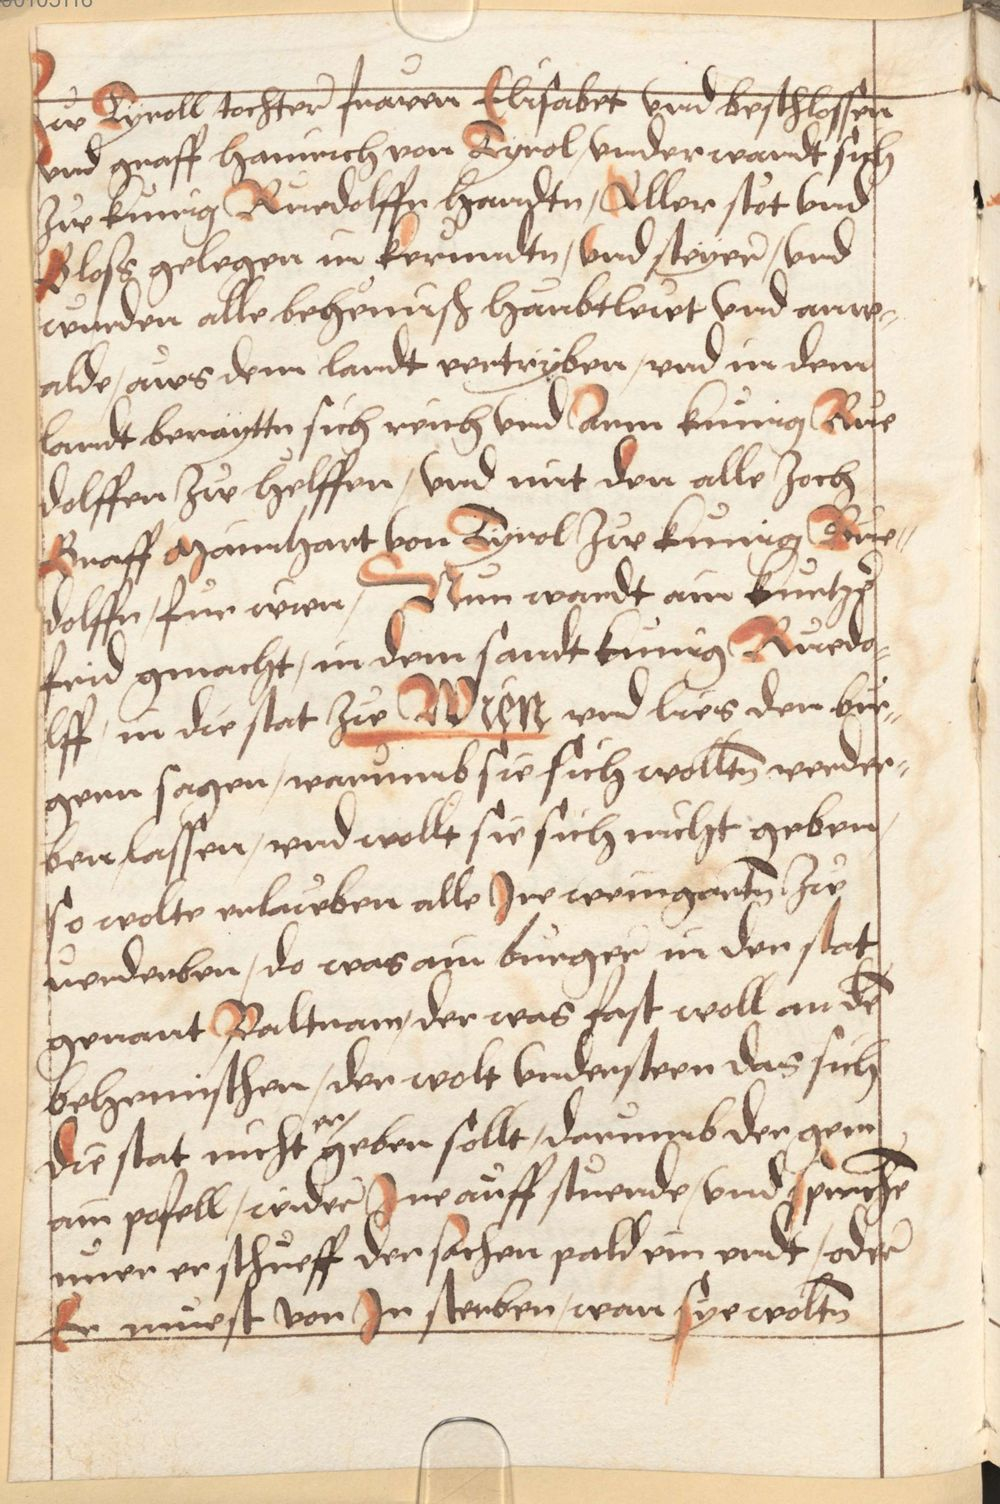 Zw Tyroll tochter frawen Elisabet vnd beschlossen
vnd graff hainrich von Tyrol / vnderwandt sich
Zue kunig Ruedolffn handtn / Aller stet vnd
Gloss gelegen in kerundtn / vnd steyer / vnd
wurden alle behemisch haubtlewt vnd anw-
alde / aws dem landt vertryben / vnd in dem
landt beraytn sich reich vnd Arm kunig Rue
dolffen zw helffen / vnd mit den alle zoch
Graff Mainhart von Tyrol zw kunig Rue-
dolffn / fur wien / Nun wardt ain kurtzer
frid gmacht / in dem sandt kunig Ruedo-
lff / in die stat zw Wien vnd lies den bur-
gern sagen / warumb sie sich wolltn verder-
ben lassen / vnd wollt sie sich nicht geben /
so wolte erlawben alle Jre weingartn zw
verderben / do was ain burger in der stat
genant Paltram / der was fast woll an den
behemischen / der wolt vndersteen das sich
die stat nicht er geben sollt / darumb der gem
ain pofell / wider Jne auff stuende / vnd sprache
nuer er schueff der sachen pald ein endt / oder
Er muest von Jn sterben / wan sye woltn